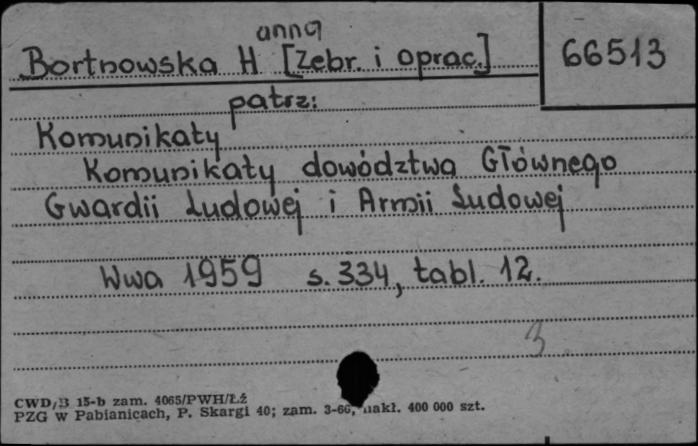 anna
Bortnowska H [Zebr. i oprac.] 66513
patrz:
Komunikaty
Komunikaty dowództwa Głównego
Gwardii Ludowej i Armii Ludowej
Wwa 1959 s. 334, tabl. 12.
3
CWD/B 15-b zam. 4065/PWH/Łż
PZG w Pabianicach, P. Skargi 40; zam. 3-66, nakł. 400 000 szt.